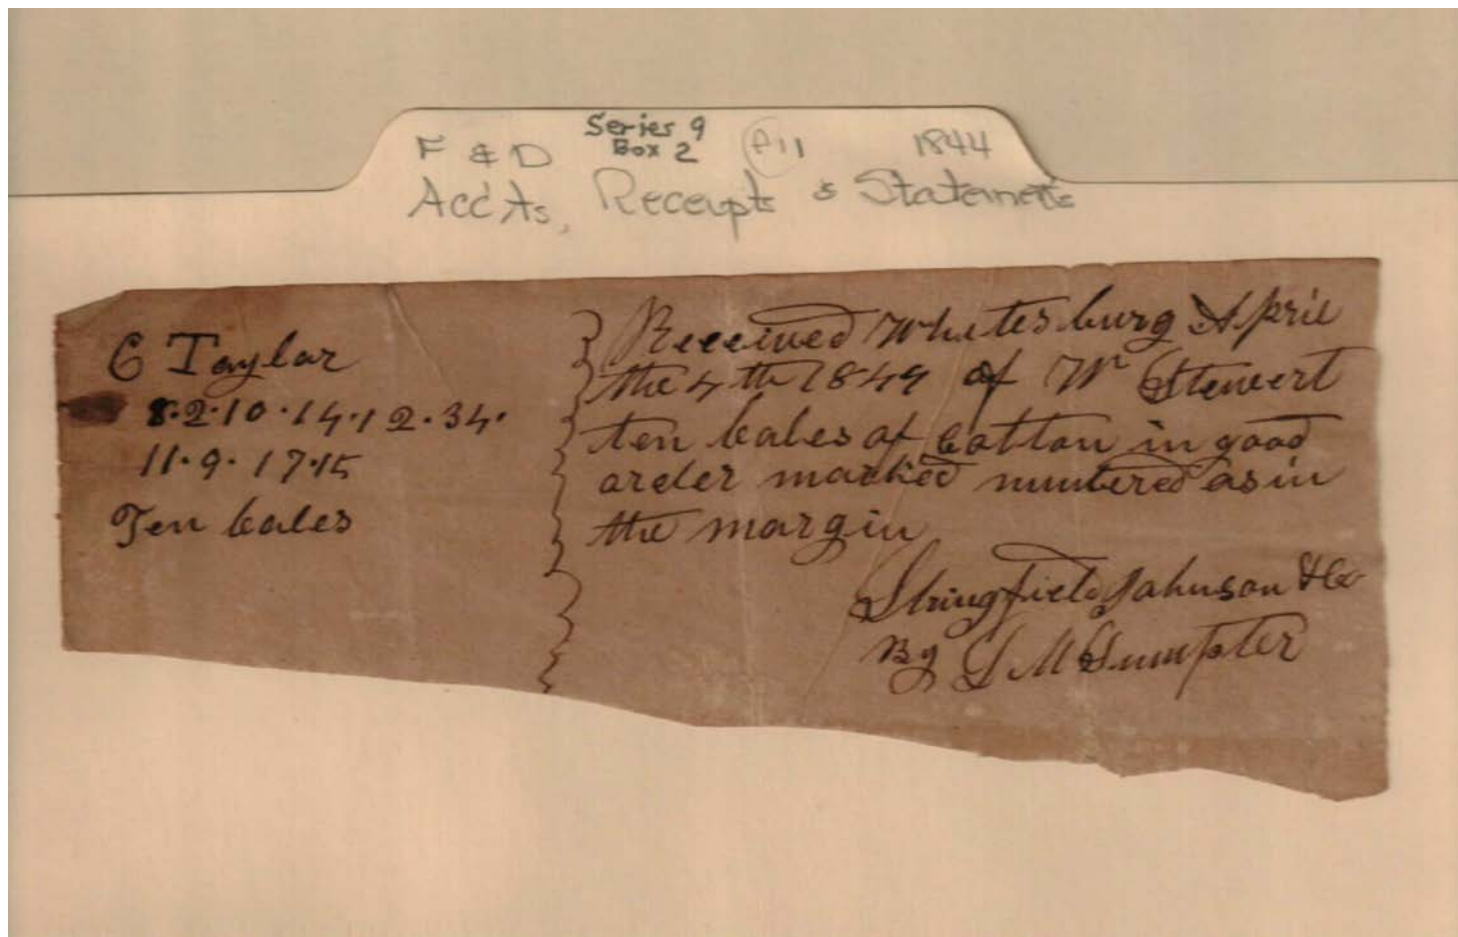 Series 9
F & D Box 2 P11 1844
Acc'ts, Receipts & Statements
C Taylor
8.2.10.14.12.34.
11.9.17.15
Ten bales
Received Whitesburg April
the 4th 1844 of Wm Stewert
ten bales of Cotton in good
order marked numbered as in
the margin
Stringfield Johnson & Co
By L M Sumpter